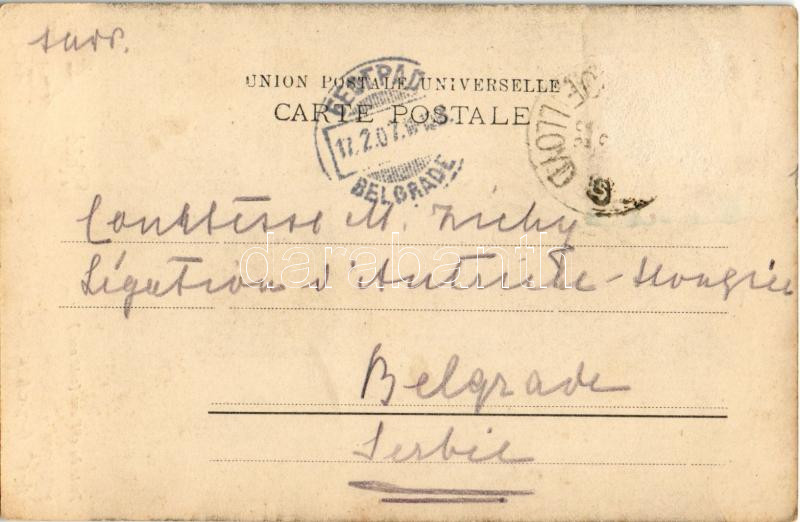 UNION POSTALE UNIVERSELLE
CARTE POSTALE
БЕОГРАД
17.2.07
BELGRADE
LLOYD
Comtesse M. Zichy
Légation d'Autriche-Hongrie
darabanth
Belgrade
Serbie